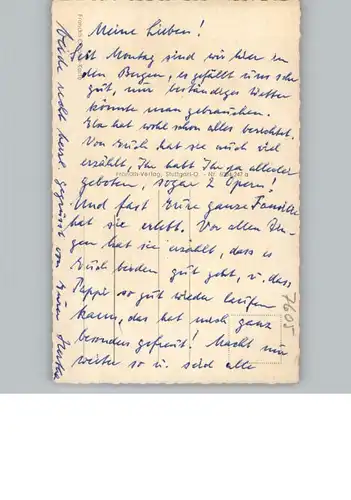 Meine Lieben!
Seit Montag sind wir hier in
den Bergen, es gefällt uns sehr
gut, nur beständiges Wetter
könnte man gebrauchen.
Elsa hat wohl schon alles berichtet.
Von Euch hat sie auch viel
erzählt, Ihr habt Ihr ja allerlei
geboten, sogar 2 Opern!
Und fast Eure ganze Familie
hat sie erlebt. Vor allen Din-
gen hat sie erzählt, dass es
Euch beiden gut geht, u. dass
Pappi so gut wieder laufen
kann, das hat mich ganz
besonders gefreut! Macht nur
weiter so u. seid alle
Beide recht herzl. gegrüsst von Eurer
Franckh-Verlag, Stuttgart-O.
7605